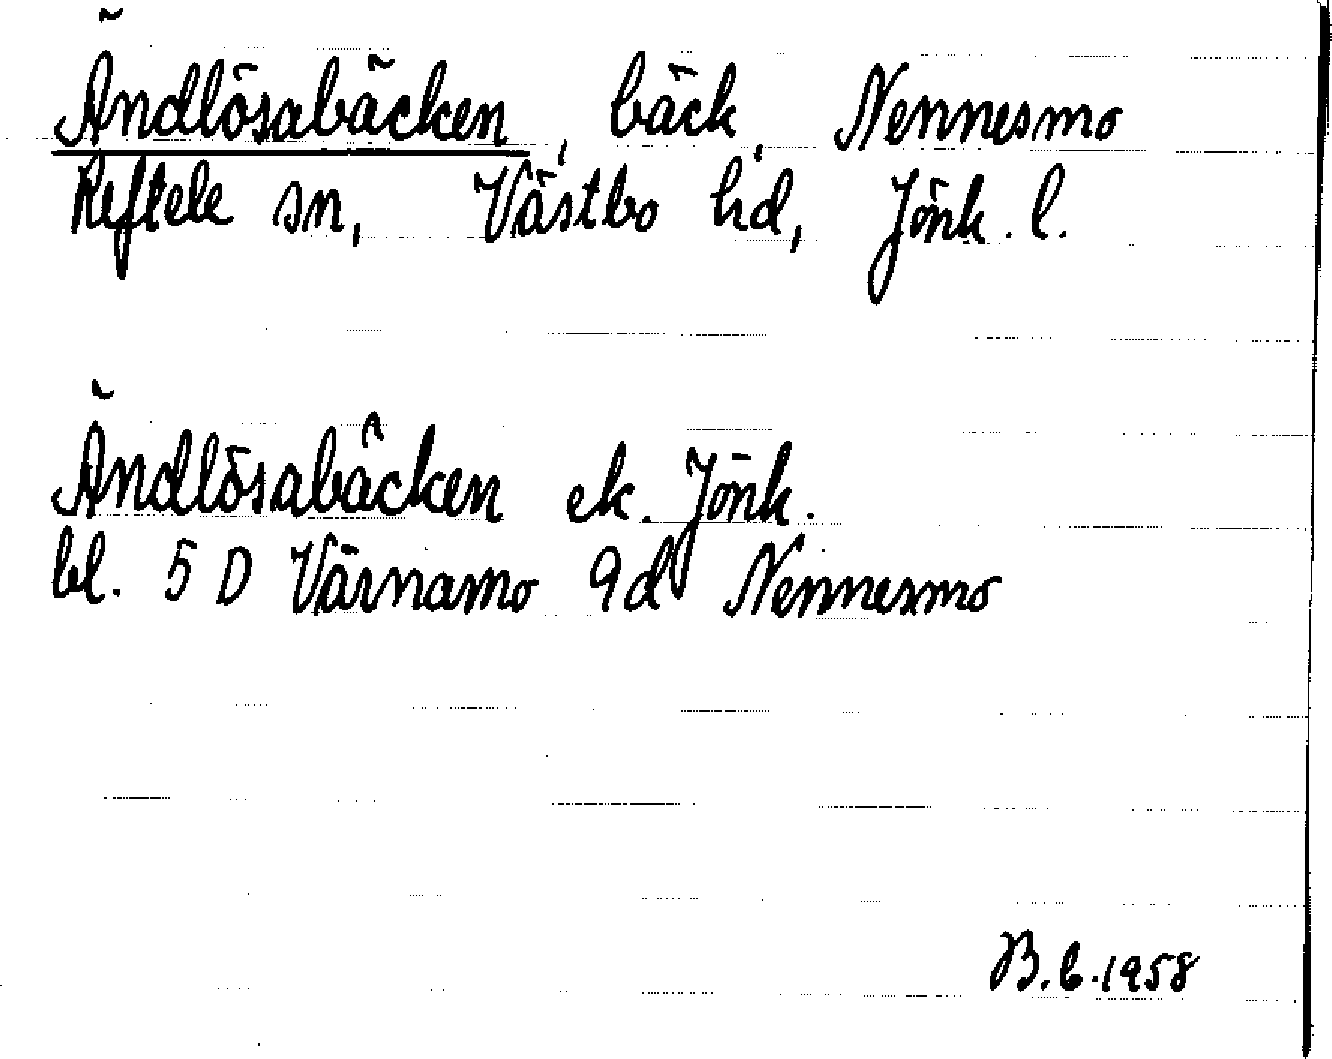 Ändlösabäcken, bäck, Nennesmo
Reftele sn, Västbo hd, Jönk. l.
Ändlösabäcken ek. Jönk.
bl. 5 D Värnamo 9d Nennesmo
B.L. 1958